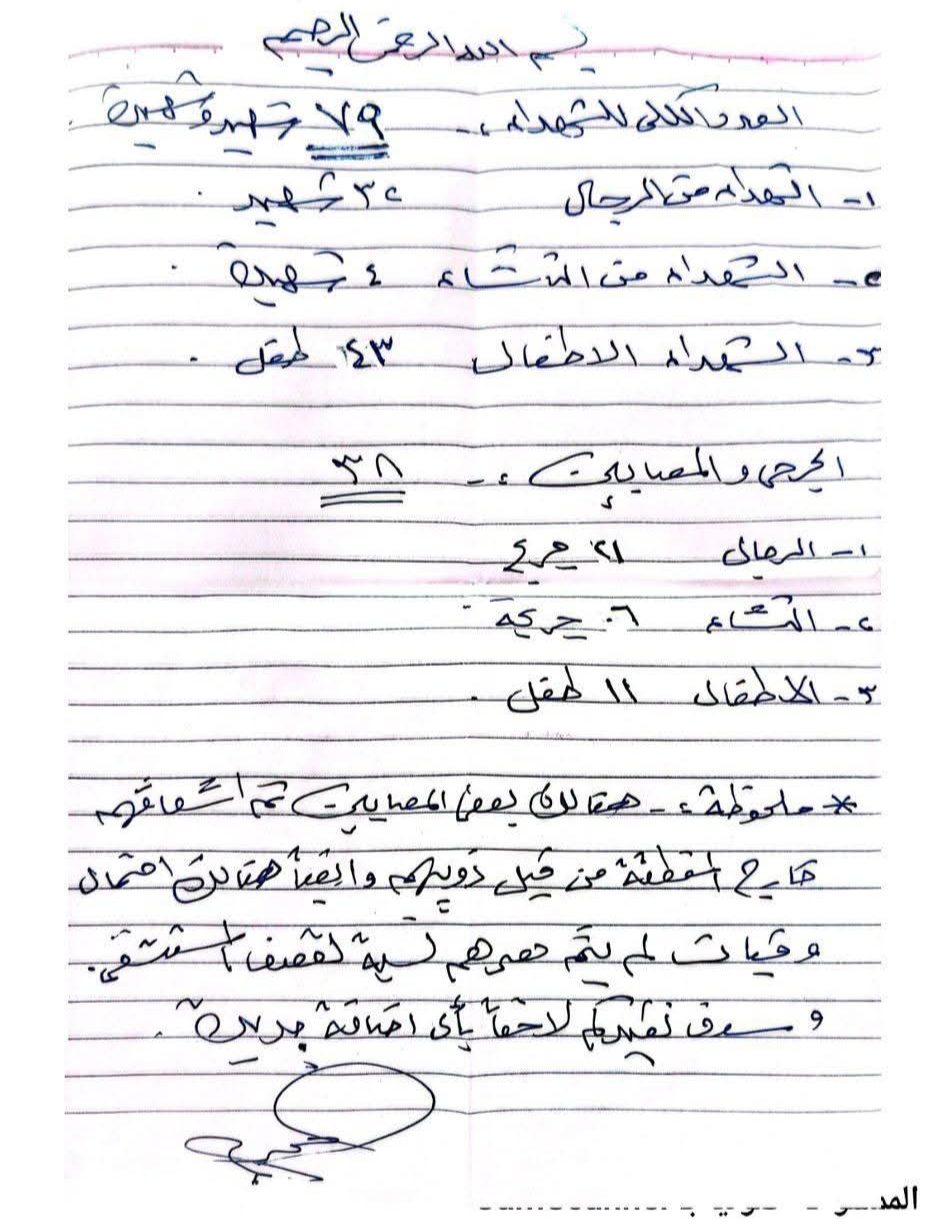 بسم الله الرحمن الرحيم
العدد الكلي للشهداء :- ٧٩ شهيد وشهيدة .
١- الشهداء من الرجال ٣٢ شهيد .
٢- الشهداء من النساء ٤ شهيدة .
٣- الشهداء الاطفال ٤٣ طفل .
الجرحى والمصابين :- ٣٨
١- الرجال ٢١ جريح
٢- النساء ٠٦ جريحة .
٣- الاطفال ١١ طفل .
* ملحوظة :- هنالك بعض المصابين تم اسعافهم
خارج المنطقة من قبل ذويهم وايضاً هنالك احتمال
وفيات لم يتم حصرهم نسبة لقصف المستشفى .
وسوف نفيدكم لاحقاً بأي اضافة جديدة .